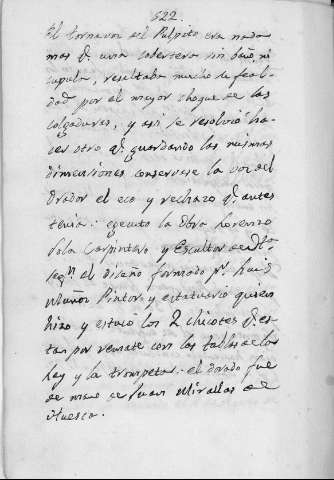 522.
El tornavoz del Pulpito era nada
mas q. una cobertera sin baño, ni
cupula, resultaba mucho la feal-
dad por el mayor choque de las
colgaduras, y asi se resolvió ha-
cer otro q. guardando las mismas
dimensiones conservese la voz del
Orador el eco y rechazo q. antes
tenia: egecuto la Obra Lorenzo
Sola Carpintero y Escultor de
segn el diseño formado pr Luis
Muñoz Pintor, y estatuario quien
hizo y estucó los 2 chicotes q. es-
tan por remate con las tablas de la
ley y la trompeta: el dorado fue
de mano de Juan Mirallas de
Huesca.